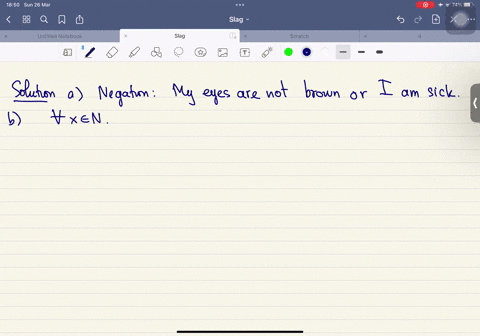 18:50 Sun 26 Mar
74%
Slag
Untitled Notebook Slag Scratch
Solution a) Negation: My eyes are not brown or I am sick.
b) ∀ x∈N.